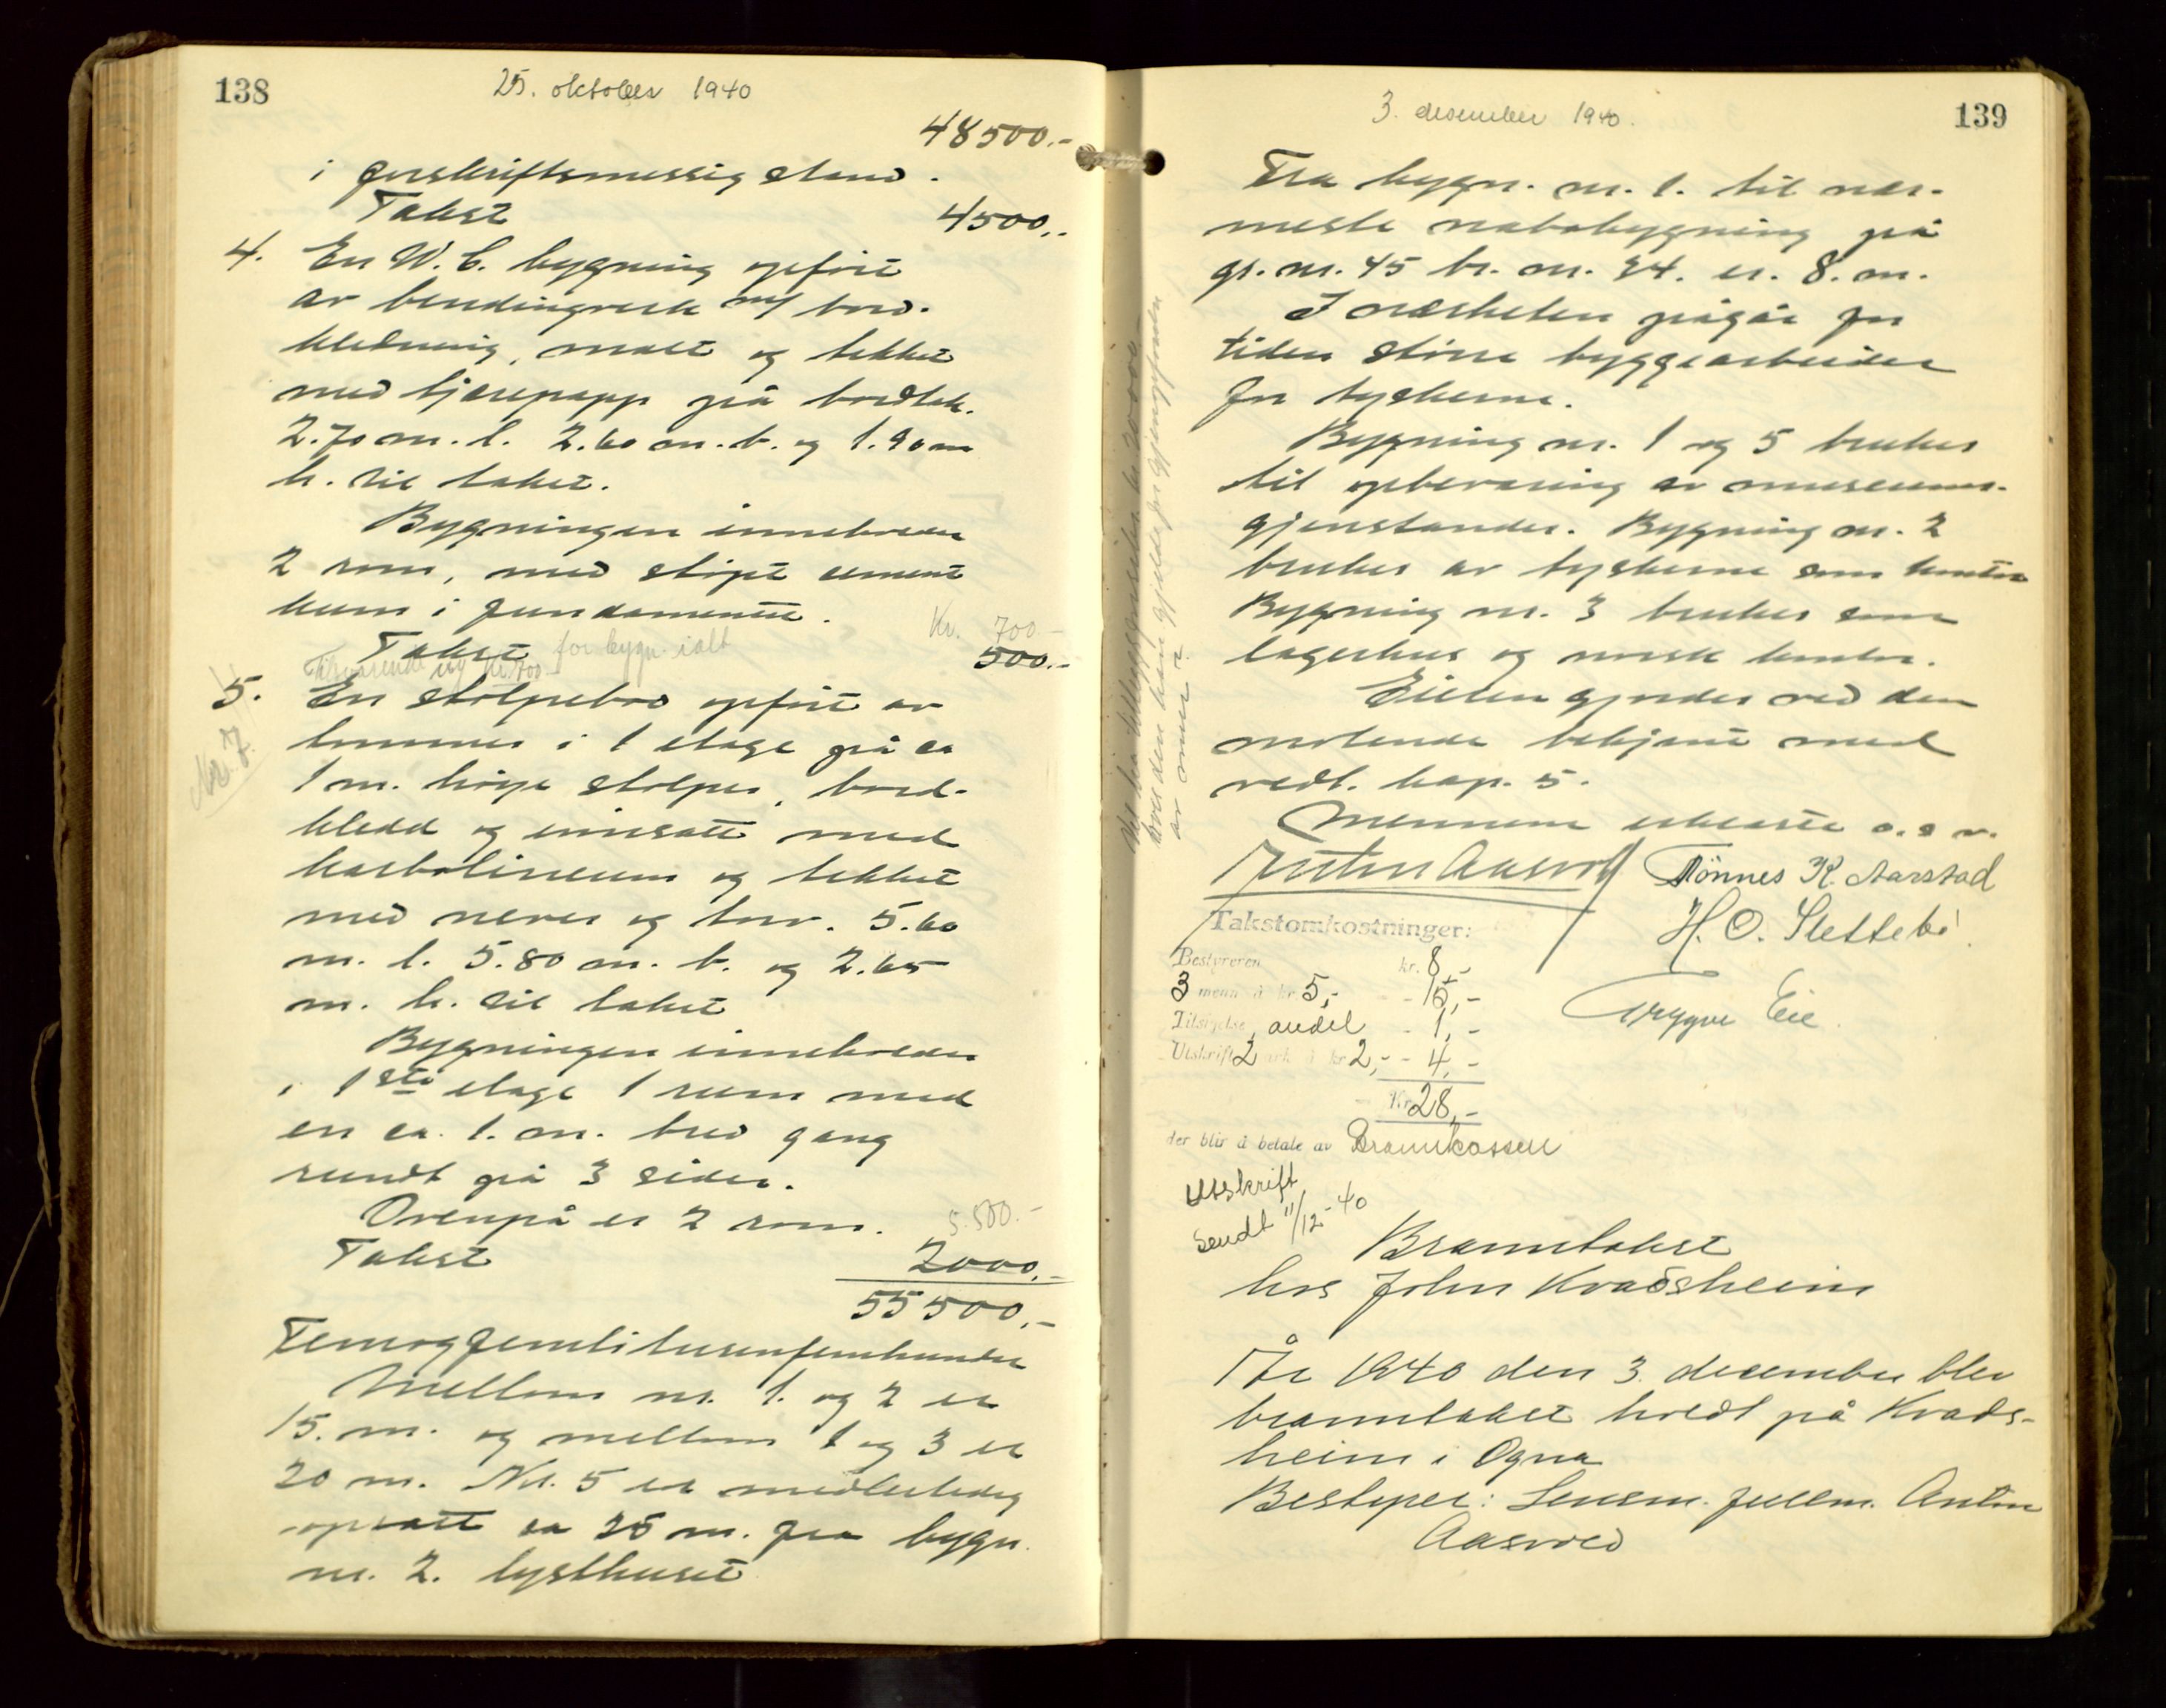 138
25. oktober 1940
48500.-
i forskriftsmessig stand.
Takst 4500.-
4. En W.C. bygning opført
av bindingverk m/ bord-
kledning, malt og tekket
med tjærepapp på bordtak.
2.70 m. l. 2.60 m. b. og 1.90 m
h. til taket.
Bygningen inneholder
2 rom, med støpt sement
kum i fundamentet.
Kr. 700.-
Takst for bygn. ialt 500.-
Tilsvarende ny kr. 700
5. En stolpebod opført av
Nr. 7.
tømmer i 1 etage på ca
1 m. høye stolper, bord-
kledd og innsatt med
karbolineum og tekket
med never og torv. 5.60
m. l. 5.80 m. b. og 2.65
m. h. til taket
Bygningen inneholder
i 1ste etage 1 rum med
en ca. 1. m. bred gang
rundt på 3 sider.
Ovenpå er 2 rom. 5.500.-
Takst 2000.-
55500.-
Femogfemtitusenfemhundre
Mellom nr. 1. og 2 er
15. m. og mellom 1 og 3 er
20 m. Nr. 5 er midlertidig
opsatt ca 25 m. fra bygn.
nr. 2. lysthuset
139
3. desember 1940.
Fra bygn. nr. 1. til nær-
meste nabobygning på
gr. nr. 45 br. nr. 34. er. 8. m.
I nærheten pågår for
tiden større byggearbeider
for tyskerne.
Bygning nr. 1 og 5 brukes
til opbevaring av museums-
gjenstander. Bygning nr. 2
brukes av tyskerne som kontor
Bygning nr. 3 brukes som
lagerhus og norsk kontor.
Eieren gjordes ved den
møtende bekjent med
vedt. kap. 5.
Mennene erklærte o.s.v.
Anton Aasvold Tönnes K. Aarstad
H. O. Slettebø
Trygve Eie
Takstomkostninger:
Bestyreren kr. 8,-
3 menn à kr. 5,- - 15,-
Tilsigelse, andel - 1,-
Utskrift 2 ark à kr 2,- - 4,-
Kr. 28,-
der blir å betale av Brannkassen
Utskrift
sendt 11/12-40
Branntakst
hos John Kvadsheim
År 1940 den 3. desember blev
branntakst holdt på Kvads-
heim i Ogna
Bestyrer: Lensm. fullm. Anton
Aasvold